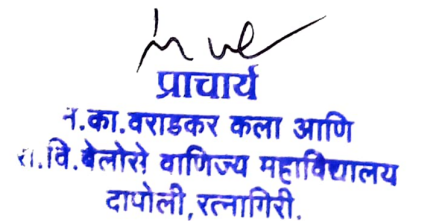 प्राचार्य
न.का.वराडकर कला आणि
रा.वि.बेलोसे वाणिज्य महाविद्यालय
दापोली,रत्नागिरी.